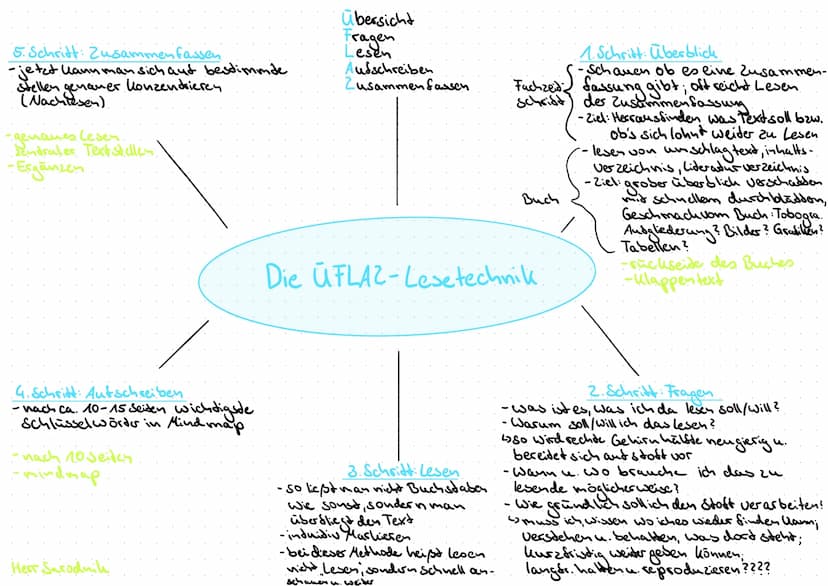 Übersicht
Fragen
Lesen
Aufschreiben
Zusammenfassen
5. Schritt: Zusammenfassen
- jetzt kann man sich auf bestimmde
stellen genauer konzendrieren
(Nachlesen)
- genaues Lesen
zentraler Textstellen
- Ergänzen
1. Schritt: Überblick
Fachzeit-
schrift
- schauen ob es eine Zusammen-
fassung gibt; oft reicht Lesen
der Zusammenfassung
- Ziel: Herrausfinden was Text soll bzw.
ob's sich lohnt weider zu Lesen
Buch
- lesen von umschlagtext, inhalts-
verzeichnis, Literaturverzeichnis
- Ziel: grober überblick verschaffen
mit schnellem durchblättern,
Geschmack vom Buch: Tobogra.
Aufgliederung? Bilder? Grafiken?
Tabellen?
- rückseite des Buches
- Klappentext
Die ÜFLAZ-Lesetechnik
4. Schritt: Aufschreiben
- nach ca. 10-15 seiten wichdigsde
Schlüsselwörder in Mindmap
- nach 10 seiten
- mindmap
2. Schritt: Fragen
- was ist es, was ich da lesen soll/will?
- Warum soll/will ich das lesen?
↳ so wird rechte Gehirnhälfte neugierig u.
bereidet sich auf stoff vor
- Wann u. wo brauche ich das zu
lesende möglicherweise?
- Wie gründlich soll ich den Stoff verarbeiten?
↳ muss ich, wissen wo ich es wieder finden kann;
verstehen u. behalten, was dord steht;
kurzfristig weiter geben können;
langfr. halten u. reproduzieren????
3. Schritt: Lesen
- so ließt man nicht Buchstaben
wie sonst, sondern man
überfliegt den Text
- induitiv Markieren
- bei dieser Methode heißt lesen
nicht „Lesen", sondern schnell an-
schauen u. weiter
Herr Sarodnik